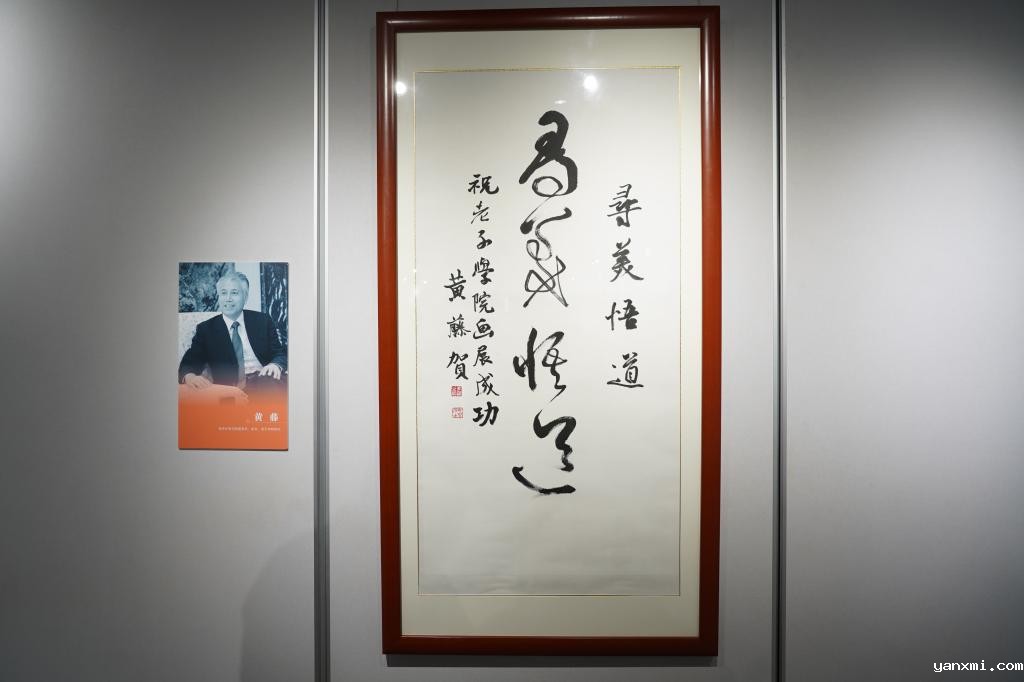 尋美悟道
尋美悟道
祝老子學院画展成功
黄藤賀
黄藤
yanxmi.com